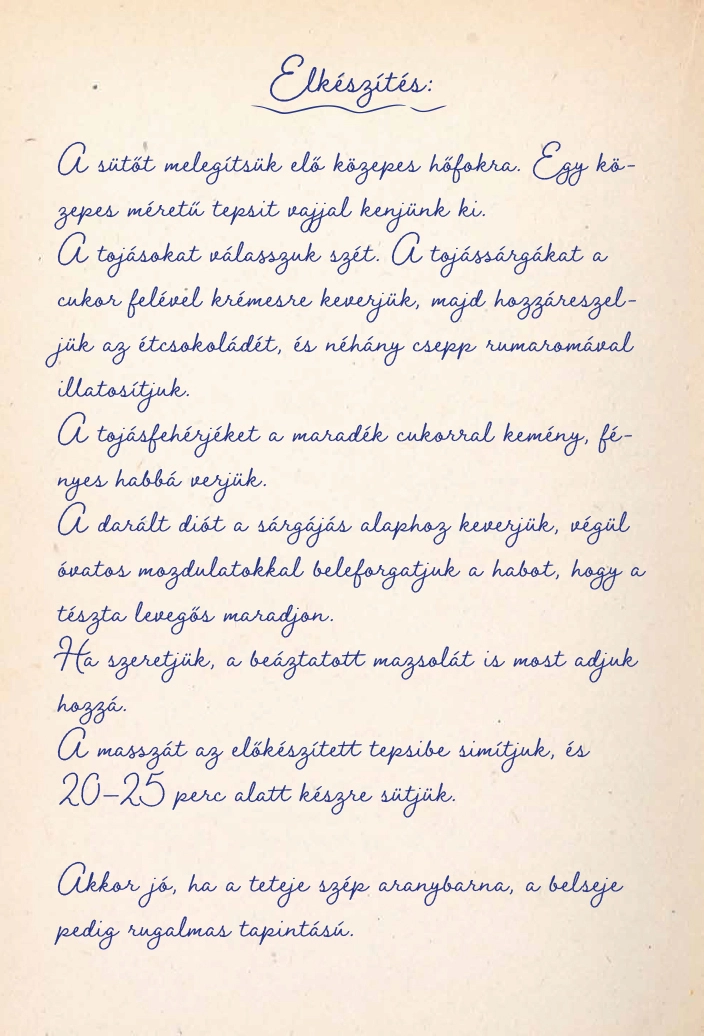 Elkészítés:
A sütőt melegítsük elő közepes hőfokra. Egy kö-
zepes méretű tepsit vajjal kenjünk ki.
A tojásokat válasszuk szét. A tojássárgákat a
cukor felével krémesre keverjük, majd hozzáreszel-
jük az étcsokoládét, és néhány csepp rumaromával
illatosítjuk.
A tojásfehérjéket a maradék cukorral kemény, fé-
nyes habbá verjük.
A darált diót a sárgájás alaphoz keverjük, végül
óvatos mozdulatokkal beleforgatjuk a habot, hogy a
tészta levegős maradjon.
Ha szeretjük, a beáztatott mazsolát is most adjuk
hozzá.
A masszát az előkészített tepsibe simítjuk, és
20–25 perc alatt készre sütjük.
Akkor jó, ha a teteje szép aranybarna, a belseje
pedig rugalmas tapintású.